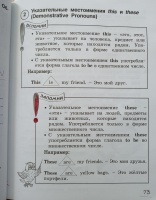 2
Указательные местоимения this и these
(Demonstrative Pronouns)
• Указательное местоимение this – «эта, этот,
это» – указывает на человека, предмет или
животное, которые находятся рядом. Упо-
требляется только в форме единственного
числа.
• С указательным местоимением this употребля-
ется форма глагола to be в единственном числе.
Например:
This is my friend. – Это мой друг.
• Указательное местоимение these –
«эти» – указывает на людей, предметы
или животных, которые находятся
рядом. Употребляется только в форме
множественного числа.
• С указательным местоимением these
употребляется форма глагола to be во
множественном числе.
Например:
These are my friends. – Это мои друзья.
These are yellow bags. – Это жёлтые
портфели.
73